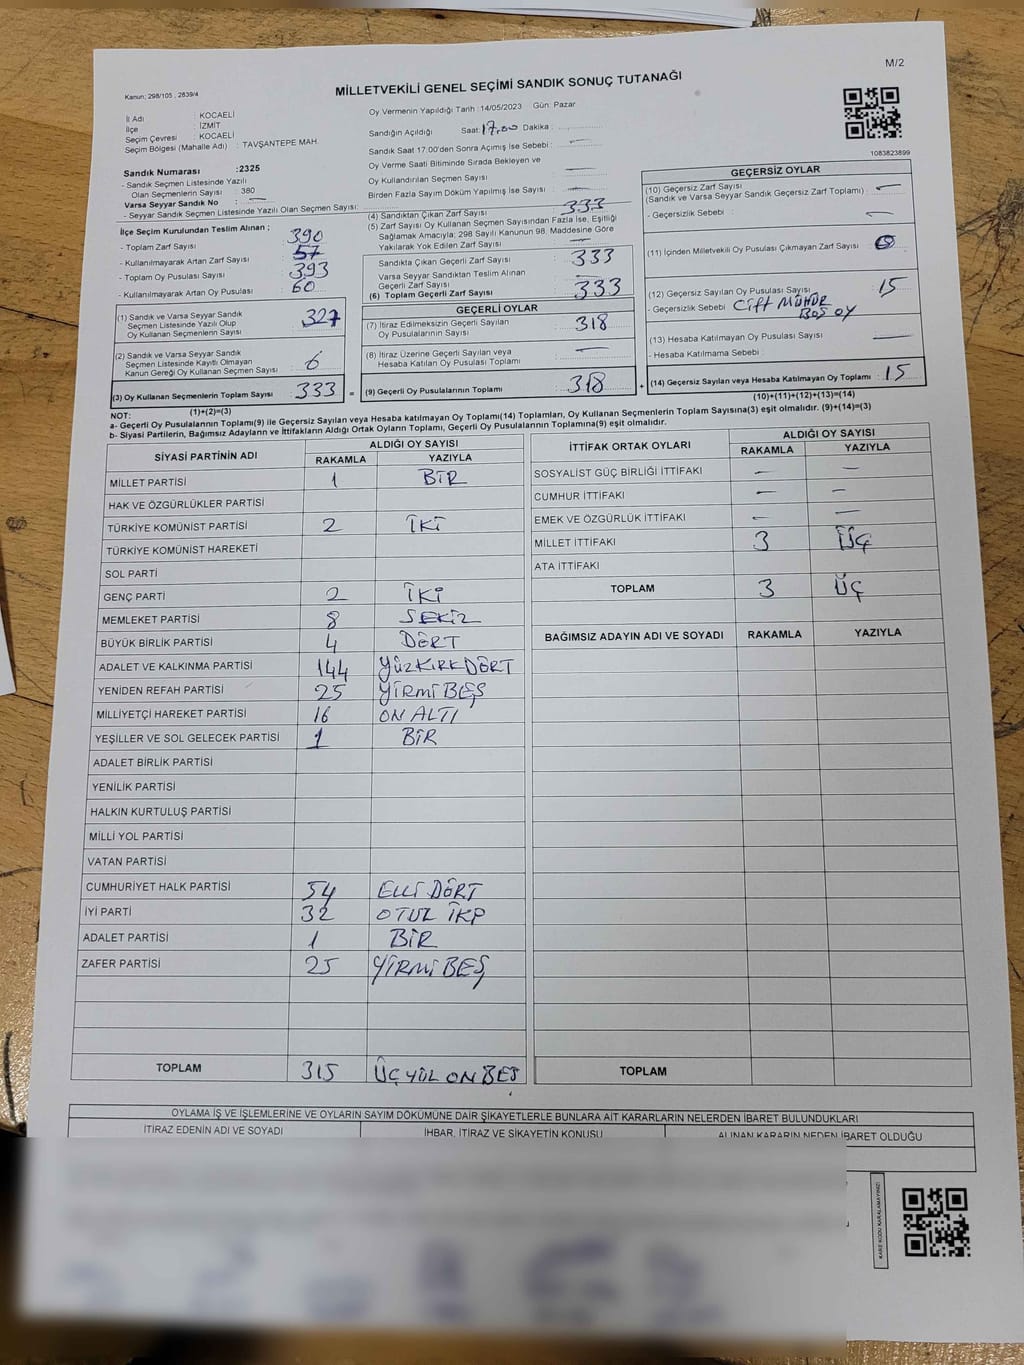 M/2
Kanun; 298/105 , 2839/4
MİLLETVEKİLİ GENEL SEÇİMİ SANDIK SONUÇ TUTANAĞI
İl Adı : KOCAELİ
İlçe : İZMİT
Seçim Çevresi : KOCAELİ
Seçim Bölgesi (Mahalle Adı) : TAVŞANTEPE MAH.
Oy Vermenin Yapıldığı Tarih : 14/05/2023 Gün: Pazar
Sandığın Açıldığı Saat: 17,00 Dakika :
Sandık Saat 17.00'den Sonra Açımış İse Sebebi : —
Oy Verme Saati Bitiminde Sırada Bekleyen ve
Oy Kullandırılan Seçmen Sayısı : —
Birden Fazla Sayım Döküm Yapılmış İse Sayısı : —
1083823899
Sandık Numarası :2325
- Sandık Seçmen Listesinde Yazılı
Olan Seçmenlerin Sayısı : 380
Varsa Seyyar Sandık No : —
- Seyyar Sandık Seçmen Listesinde Yazılı Olan Seçmen Sayısı:
İlçe Seçim Kurulundan Teslim Alınan ;
- Toplam Zarf Sayısı : 390
- Kullanılmayarak Artan Zarf Sayısı : 57
- Toplam Oy Pusulası Sayısı : 393
- Kullanılmayarak Artan Oy Pusulası : 60
(1) Sandık ve Varsa Seyyar Sandık
Seçmen Listesinde Yazılı Olup
Oy Kullanan Seçmenlerin Sayısı : 327
(2) Sandık ve Varsa Seyyar Sandık
Seçmen Listesinde Kayıtlı Olmayan
Kanun Gereği Oy Kullanan Seçmen Sayısı : 6
(3) Oy Kullanan Seçmenlerin Toplam Sayısı : 333 =
(1)+(2)=(3)
(4) Sandıktan Çıkan Zarf Sayısı : 333
(5) Zarf Sayısı Oy Kullanan Seçmen Sayısından Fazla İse, Eşitliği
Sağlamak Amacıyla; 298 Sayılı Kanunun 98. Maddesine Göre
Yakılarak Yok Edilen Zarf Sayısı : —
Sandıkta Çıkan Geçerli Zarf Sayısı : 333
Varsa Seyyar Sandıktan Teslim Alınan
Geçerli Zarf Sayısı : —
(6) Toplam Geçerli Zarf Sayısı : 333
GEÇERLİ OYLAR
(7) İtiraz Edilmeksizin Geçerli Sayılan
Oy Pusulalarının Sayısı : 318
(8) İtiraz Üzerine Geçerli Sayılan veya
Hesaba Katılan Oy Pusulası Toplamı : —
(9) Geçerli Oy Pusulalarının Toplamı : 318 +
GEÇERSİZ OYLAR
(10) Geçersiz Zarf Sayısı : —
(Sandık ve Varsa Seyyar Sandık Geçersiz Zarf Toplamı)
- Geçersizlik Sebebi : —
(11) İçinden Milletvekili Oy Pusulası Çıkmayan Zarf Sayısı :
(12) Geçersiz Sayılan Oy Pusulası Sayısı : 15
- Geçersizlik Sebebi : Çift MÜHÜR
BOŞ OY
(13) Hesaba Katılmayan Oy Pusulası Sayısı : —
- Hesaba Katılmama Sebebi :
(14) Geçersiz Sayılan veya Hesaba Katılmayan Oy Toplamı : 15
(10)+(11)+(12)+(13)=(14)
NOT:
a- Geçerli Oy Pusulalarının Toplamı(9) ile Geçersiz Sayılan veya Hesaba katılmayan Oy Toplamı(14) Toplamları, Oy Kullanan Seçmenlerin Toplam Sayısına(3) eşit olmalıdır. (9)+(14)=(3)
b- Siyasi Partilerin, Bağımsız Adayların ve İttifakların Aldığı Ortak Oyların Toplamı, Geçerli Oy Pusulalarının Toplamına(9) eşit olmalıdır.
SİYASİ PARTİNİN ADI ALDIĞI OY SAYISI
RAKAMLA YAZIYLA
MİLLET PARTİSİ 1 BİR
HAK VE ÖZGÜRLÜKLER PARTİSİ
TÜRKİYE KOMÜNİST PARTİSİ 2 İKİ
TÜRKİYE KOMÜNİST HAREKETİ
SOL PARTİ
GENÇ PARTİ 2 İKİ
MEMLEKET PARTİSİ 8 SEKİZ
BÜYÜK BİRLİK PARTİSİ 4 DÖRT
ADALET VE KALKINMA PARTİSİ 144 YÜZKIRKDÖRT
YENİDEN REFAH PARTİSİ 25 YİRMİ BEŞ
MİLLİYETÇİ HAREKET PARTİSİ 16 ON ALTI
YEŞİLLER VE SOL GELECEK PARTİSİ 1 BİR
ADALET BİRLİK PARTİSİ
YENİLİK PARTİSİ
HALKIN KURTULUŞ PARTİSİ
MİLLİ YOL PARTİSİ
VATAN PARTİSİ
CUMHURİYET HALK PARTİSİ 54 ELLİ DÖRT
İYİ PARTİ 32 OTUZ İKİ
ADALET PARTİSİ 1 BİR
ZAFER PARTİSİ 25 YİRMİ BEŞ
TOPLAM 315 ÜÇ YÜZ ON BEŞ
İTTİFAK ORTAK OYLARI ALDIĞI OY SAYISI
RAKAMLA YAZIYLA
SOSYALİST GÜÇ BİRLİĞİ İTTİFAKI — —
CUMHUR İTTİFAKI — —
EMEK VE ÖZGÜRLÜK İTTİFAKI — —
MİLLET İTTİFAKI 3 ÜÇ
ATA İTTİFAKI
TOPLAM 3 ÜÇ
BAĞIMSIZ ADAYIN ADI VE SOYADI RAKAMLA YAZIYLA
TOPLAM
OYLAMA İŞ VE İŞLEMLERİNE VE OYLARIN SAYIM DÖKÜMÜNE DAİR ŞİKAYETLERLE BUNLARA AİT KARARLARIN NELERDEN İBARET BULUNDUKLARI
İTİRAZ EDENİN ADI VE SOYADI İHBAR, İTİRAZ VE ŞİKAYETİN KONUSU ALINAN KARARIN NEDEN İBARET OLDUĞU
KARE KODU KARALAMAYINIZ!